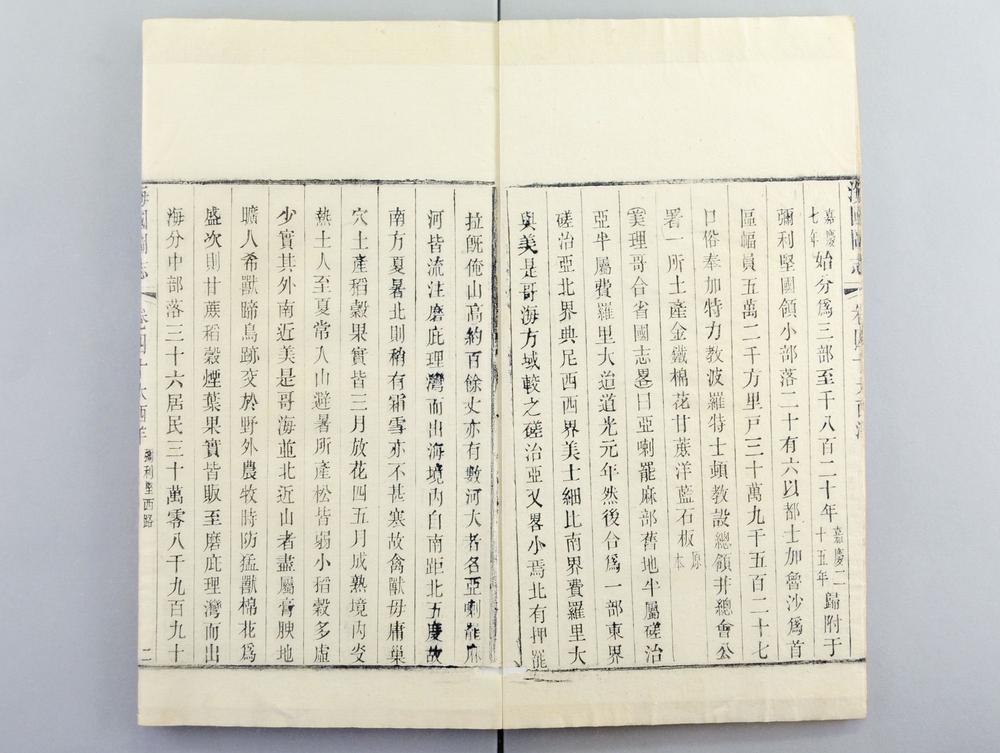 海國圖志 卷四十 大西洋
嘉慶七年始分爲三部至千八百二十年嘉慶二十五年歸附于
彌利堅國領小部落二十有六以都士加會沙爲首
區幅員五萬二千方里戸三十萬九千五百二十七
口俗奉加特力教波羅特士頓教設總領并總會公
署一所土產金鐵棉花甘蔗洋藍石板原本
美理哥合省國志畧曰亞喇罷麻部舊地半屬磋治
亞半屬費羅里大迨道光元年然後合爲一部東界
磋治亞北界典尼西西界美士細比南界費羅里大
與美是哥海方域較之磋治亞又畧小焉北有押罷
拉既俺山高約百餘丈亦有數河大者名亞喇罷麻
河皆流注磨庇理灣而出海境內自南距北五度故
南方夏暑北則稍有霜雪亦不甚寒故禽獸毋庸巢
穴土產稻穀果實皆三月放花四五月成熟境內炎
熱土人至夏常入山避暑所產松皆弱小稻穀多虛
少實其外南近美是哥海並北近山者盡屬膏腴地
曠人希獸蹄鳥跡交於野外農牧時防猛獸棉花爲
盛次則甘蔗稻穀煙葉果實皆販至磨庇理灣而出
海分中部落三十六居民三十萬零八千九百九十
海國圖志 卷四十 大西洋 彌利堅西路 二